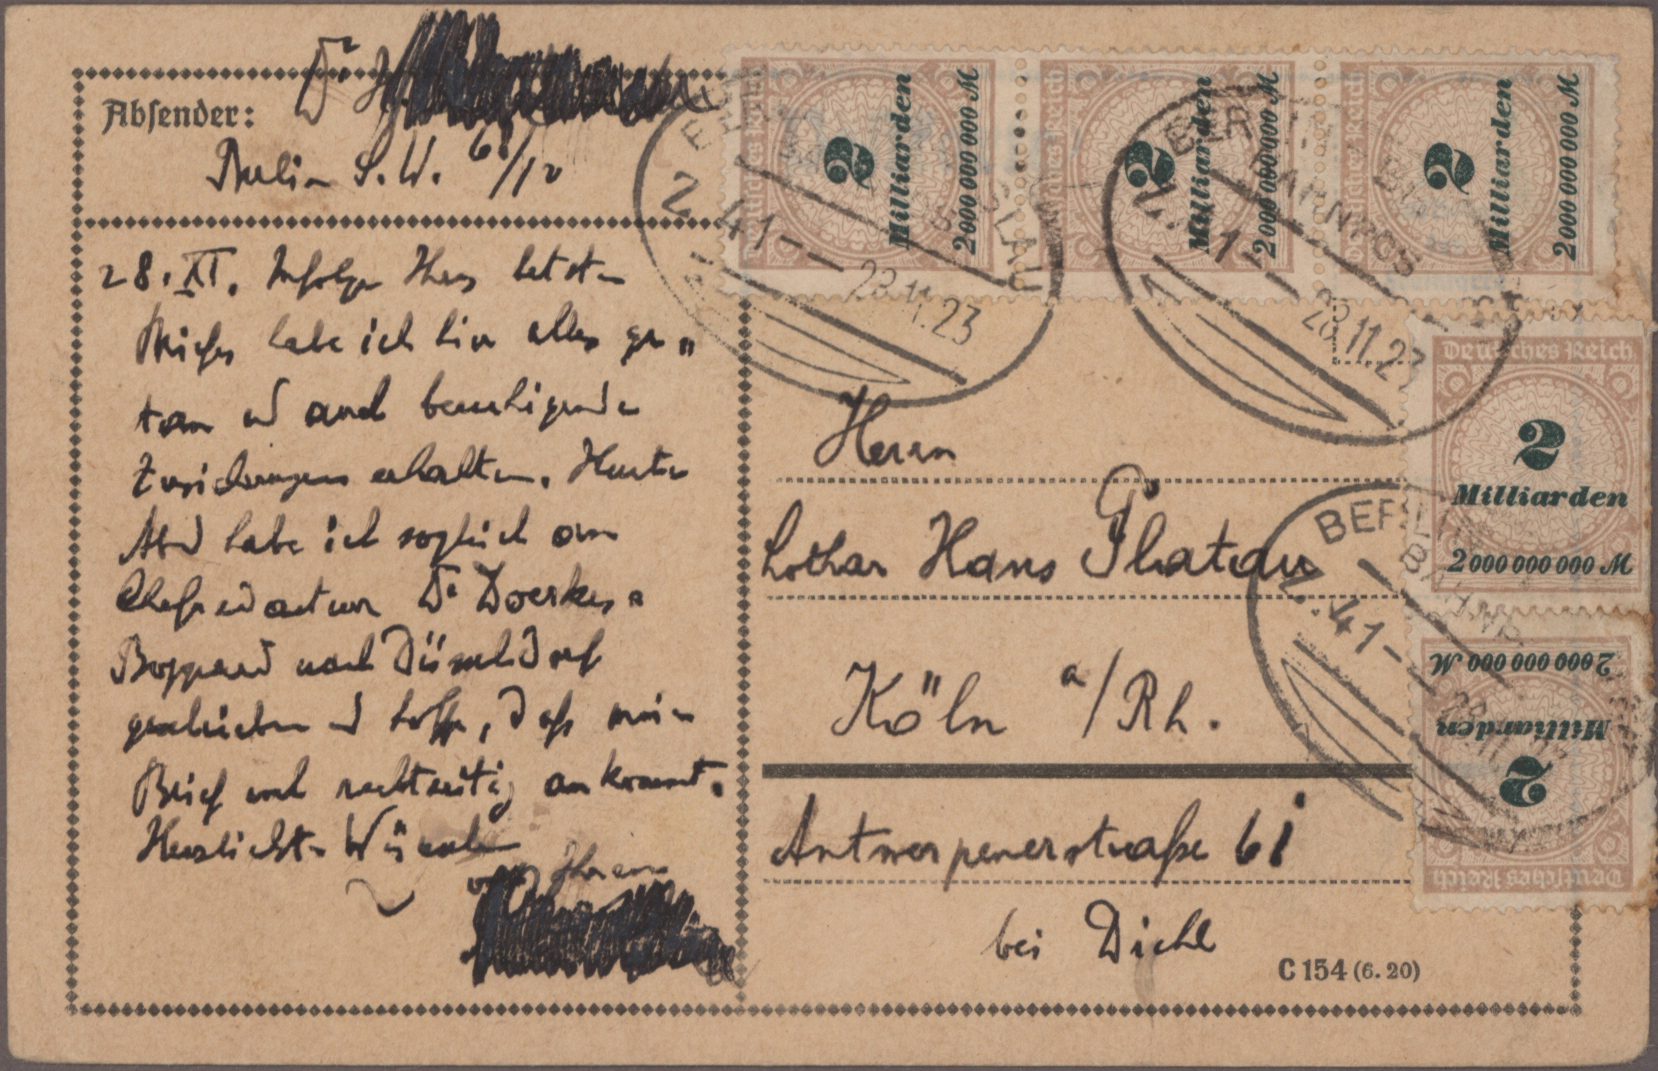 Absender:
Dr.
Berlin S.W. 61/10
28. XI. Infolge Ihres letzten
Briefes habe ich hier alles ge„
tan und auch beruhigende
Zusicherungen erhalten. Heute
Abend habe ich sogleich an
Chefredacteur Dr Doerkes„
Boppard nach Düsseldorf
geschrieben und hoffe, daß mein
Brief noch rechtzeitig ankommt.
Herzlichste Wünsche
von Ihrem
2
Milliarden
2000 000 000 M
2
Milliarden
2000 000 000 M
2
Milliarden
2000 000 000 M
Deutsches Reich
2
Milliarden
2000 000 000 M
Deutsches Reich
2
Milliarden
2000 000 000 M
BERLIN
BRESLAU
BAHNPOST
Z. 41
28.11.23
BERLIN
BAHNPOST
28.11.23
BERLIN
BAHNP
Z. 41
Herrn
Lothar Hans Platau
Köln a/Rh.
Antwerpenerstraße 6I
bei Diehl
C 154 (6. 20)